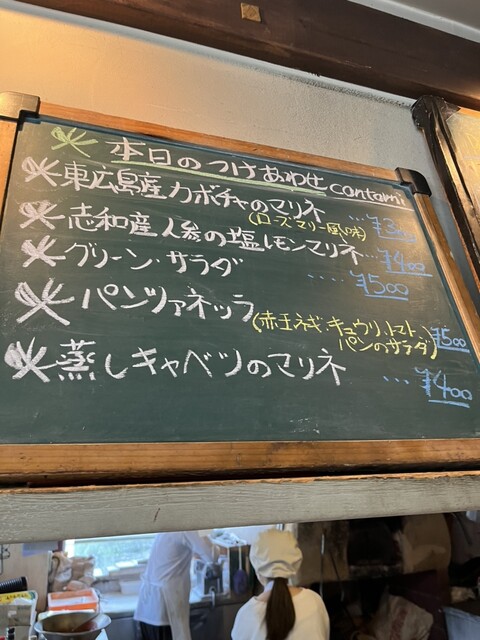 本日のつけあわせ contorni
東広島産カボチャのマリネ
(ローズマリー風味)
志和産人参の塩レモンマリネ…¥400
グリーン・サラダ ....¥500
パンツァネッラ
(赤玉ネギ キュウリ、トマト、 ¥500
パンのサラダ)
蒸しキャベツのマリネ ...¥400